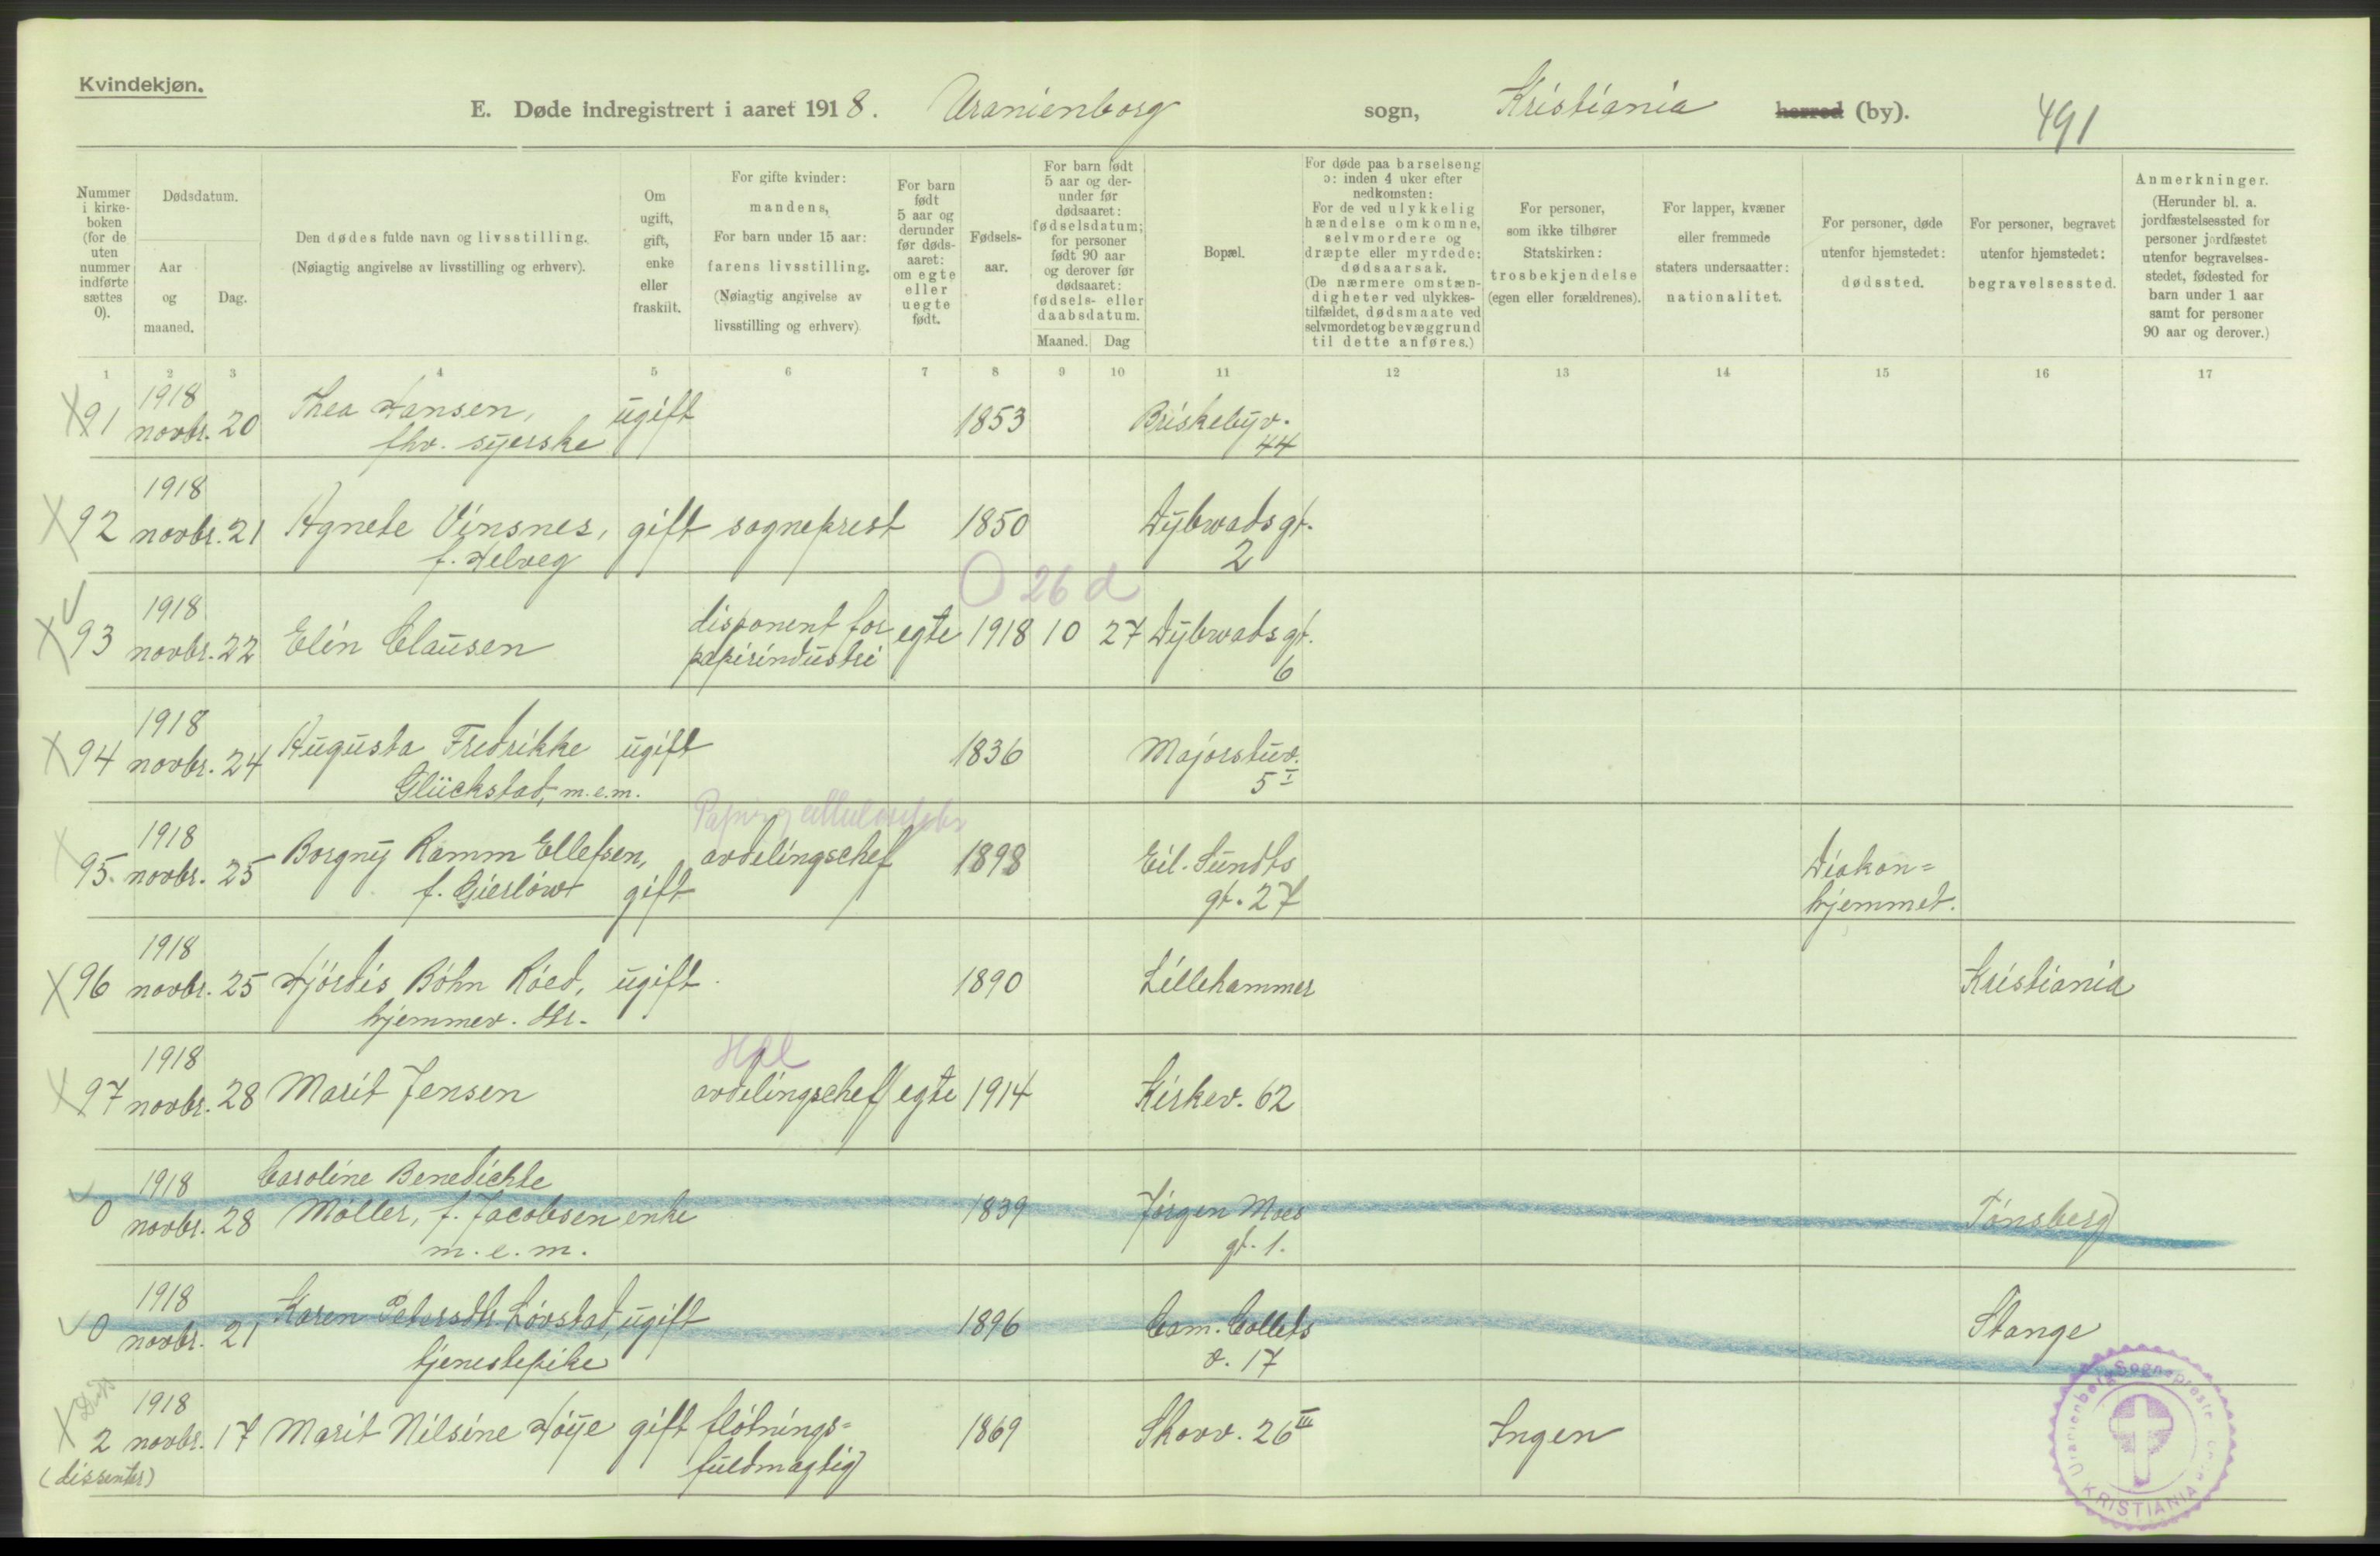 Kvindekjøn.
E. Døde indregistrert i aaret 1918. Uranienborg sogn, Kristiania herred (by). 491
Nummer i kirke-boken (for de uten nummer indførte sættes 0).
Dødsdatum.
Aar og maaned.
Dag.
Den dødes fulde navn og livsstilling.
(Nøiagtig angivelse av livsstilling og erhverv).
Om ugift, gift, enke eller fraskilt.
For gifte kvinder:
mandens,
For barn under 15 aar:
farens livsstilling.
(Nøiagtig angivelse av
livsstilling og erhverv)
For barn født 5 aar og derunder før døds-aaret: om egte eller uegte født.
Fødsels-aar.
For barn født 5 aar og der-under før dødsaaret: fødselsdatum; for personer født 90 aar og derover før dødsaaret: fødsels- eller daabsdatum.
Maaned. Dag
Bopæl.
For døde paa barselseng ɔ: inden 4 uker efter nedkomsten:
For de ved ulykkelig hændelse omkomne, selvmordere og dræpte eller myrdede: dødsaarsak.
(De nærmere omstæn-digheter ved ulykkes-tilfældet, dødsmaate ved selvmordet og bevæggrund til dette anføres.)
For personer, som ikke tilhører Statskirken: trosbekjendelse (egen eller forældrenes).
For lapper, kvæner eller fremmede staters undersaatter: nationalitet.
For personer, døde utenfor hjemstedet: dødssted.
For personer, begravet utenfor hjemstedet: begravelsessted.
Anmerkninger.
(Herunder bl. a. jordfæstelsessted for personer jordfæstet utenfor begravelses-stedet, fødested for barn under 1 aar samt for personer 90 aar og derover.)
1 2 3 4 5 6 7 8 9 10 11 12 13 14 15 16 17
1918
X 91 novbr. 20 Thea Hansen, ugift 1853 Briskebyv.
fhv. syerske 44
1918
X 92 novbr. 21 Agnete Vinsnes, gift sogneprest 1850 Dybwadsgt.
f. Helveg 2
0 26 d
1918 disponent for
X 93 novbr. 22 Elin Clausen egte 1918 10 27 Dybwadsgt.
papirindustri 6
1918
X 94 novbr. 24 Augusta Fredrikke ugift 1836 Majorstuv.
Glückstad, m.e.m. 5 I
1918
X 95. novbr. 25 Borgny Ramm Ellefsen, avdelingschef 1898 Eil. Sundts Diakon=
f. Gierløw gift gt. 27 hjemmet.
1918
X 96 novbr. 25 Hjördis Böhn Röed, ugift 1890 Lillehammer Kristiania
hjemmev. dtr.
1918
X 97 novbr. 28 Marit Jensen avdelingschef egte 1914 Kirkev. 62
1918 Caroline Benedichte
0 novbr. 28 Møller, f. Jacobsen enke 1839 Jørgen Moes Tønsberg
m.e.m. gt. 1.
1918
0 novbr. 21 Karen Petersdtr. Lövstad, ugift 1896 Cam. Colletts Stange
tjenestepike v. 17
Diss
1918
X 2 novbr. 17 Marit Nilsine Höye gift fløtnings= 1869 Skovv. 26 III Ingen
(dissenter) fuldmægtig
Uranienborg Sogneprest
KRISTIANIA